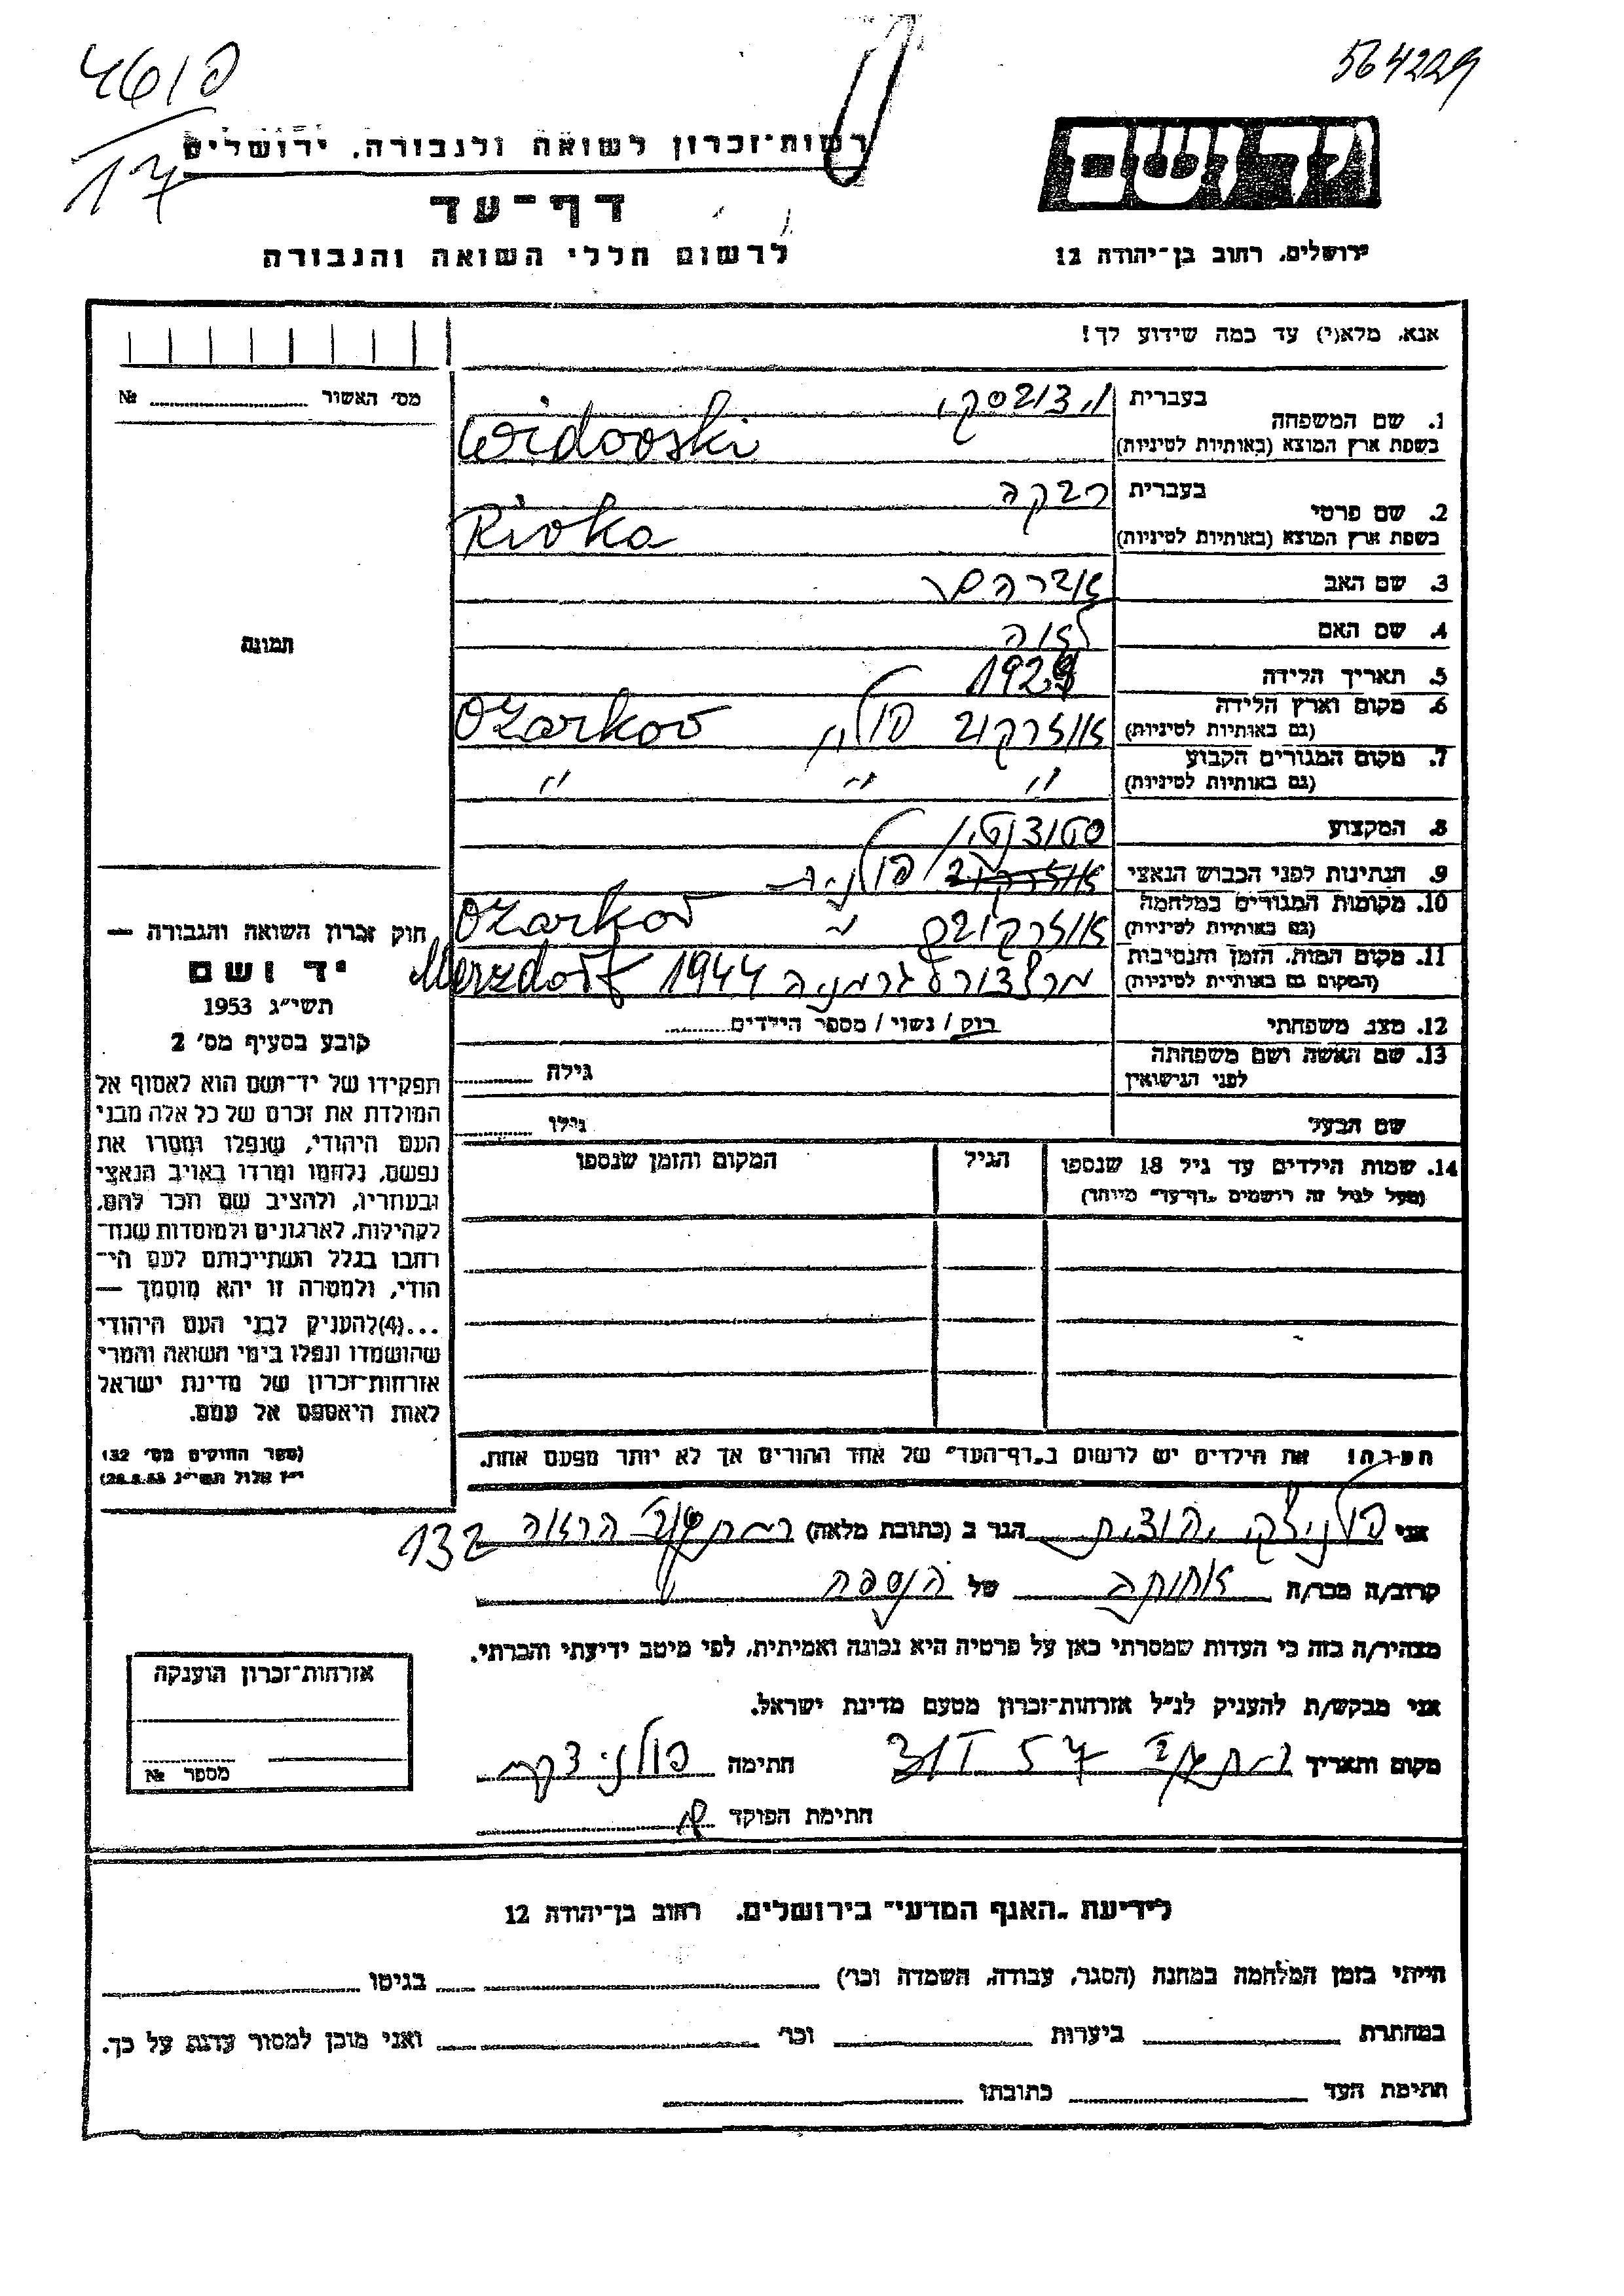 4610
17
564229
רשות־זכרון לשואה ולגבורה, ירושלים
דף־עד
לרשום חללי השואה והגבורה
יד ושם
ירושלים, רחוב בן־יהודה 12
אנא, מלא(י) עד כמה שידוע לך!
מס' האשור № ..........
תמונה
1. שם המשפחה בעברית וידובסקי
בשפת ארץ המוצא (באותיות לטיניות) Widovski
2. שם פרטי בעברית רבקה
בשפת ארץ המוצא (באותיות לטיניות) Rivka
3. שם האב אברהם
4. שם האם לאה
5. תאריך הלידה
6. מקום וארץ הלידה (גם באותיות לטיניות) אוזרקוב פולין Ozarkov
7. מקום המגורים הקבוע (גם באותיות לטיניות) " " "
8. המקצוע סטודנטית
9. הנתינות לפני הכבוש הנאצי פולנית
10. מקומות המגורים במלחמה (גם באותיות לטיניות) אוזרקוב " Ozarkov
11. מקום המות, הזמן והנסיבות (המקום גם באותיות לטיניות) מרצדורף גרמניה 1944 Merzdorf
12. מצב משפחתי רווק / נשוי / מספר הילדים ..........
13. שם האשה ושם משפחתה לפני הנישואין גילה ..........
שם הבעל גילו ..........
14. שמות הילדים עד גיל 18 שנספו
(מעל לגיל זה רושמים „דף־עד" מיוחד)
הגיל
המקום והזמן שנספו
חוק זכרון השואה והגבורה —
יד ושם
תשי"ג 1953
קובע בסעיף מס' 2
תפקידו של יד־ושם הוא לאסוף אל
המולדת את זכרם של כל אלה מבני
העם היהודי, שנפלו ומסרו את
נפשם, נלחמו ומרדו באויב הנאצי
ובעוזריו, ולהציב שם וזכר להם,
לקהילות, לארגונים ולמוסדות שנח־
רבו בגלל השתייכותם לעם הי־
הודי, ולמטרה זו יהא מוסמך —
...(4)להעניק לבני העם היהודי
שהושמדו ונפלו בימי השואה והמרי
אזרחות־זכרון של מדינת ישראל
לאות היאספם אל עמם.
(ספר החוקים מס' 132
י"ז אלול תשי"ג 28.8.53)
הערה! את הילדים יש לרשום ב„דף־העד" של אחד ההורים אך לא יותר מפעם אחת.
אני יהודית הגר ב (כתובת מלאה) הרואה 132
קרוב/ה מכר/ה אחותה של הנספה
מצהיר/ה בזה כי העדות שמסרתי כאן על פרטיה היא נכונה ואמיתית, לפי מיטב ידיעתי והכרתי.
אני מבקש/ת להעניק לנ"ל אזרחות־זכרון מטעם מדינת ישראל.
מקום ותאריך חתימה
חתימת הפוקד
אזרחות־זכרון הוענקה
מספר №
לידיעת „האגף המדעי" בירושלים, רחוב בן־יהודה 12
הייתי בזמן המלחמה במחנה (הסגר, עבודה, השמדה וכו') .......... בגיטו ..........
במחתרת .......... ביערות .......... וכו' .......... ואני מוכן למסור עדות על כך.
חתימת העד .......... כתובתו ..........